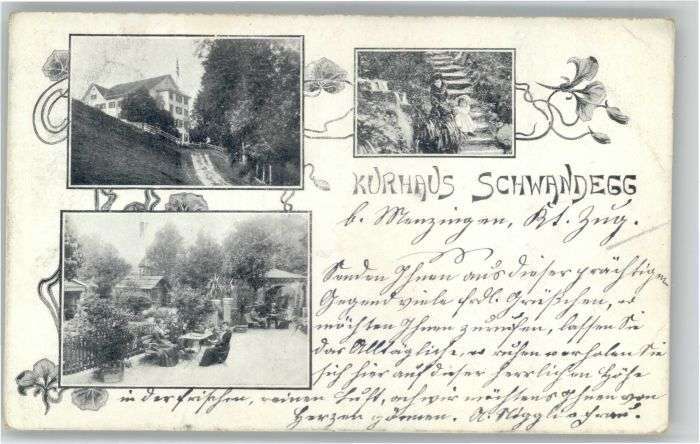 KURHAUS SCHWANDEGG
b. Menzingen, Kt. Zug.
Senden Ihnen aus dieser prächtigen
Gegend viele frdl. Grüßchen, u
möchten Ihnen zurufen, lassen Sie
das Alltägliche, u ruhen erholen Sie
sich hier auf dieser herrlichen Höhe
in der frischen, reinen Luft, ach wir möchtens Ihnen von
Herzen gönnen. A. Niggli u Frau.